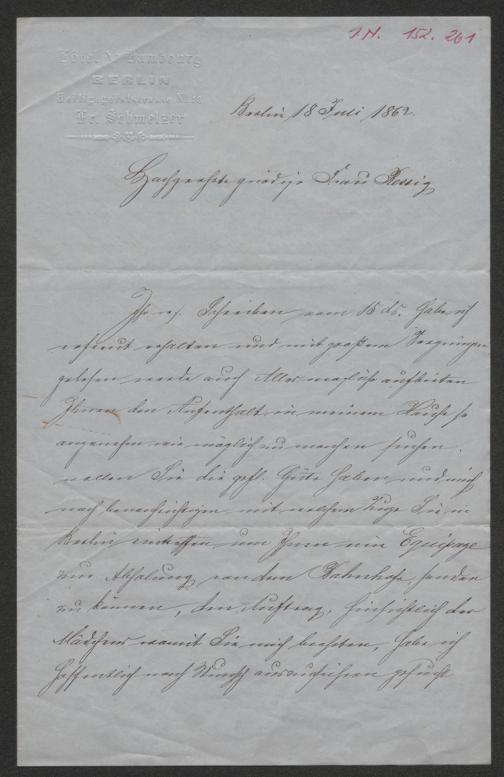 I.N. 152.261
Hôtel de Hambourg
BERLIN
Heilig. geiststrasse No. 18
Fr. Schmelzer
Berlin 18 Juli 1862.
Hochgeehrte gnädige Frau Rettig
Ihr w. Schreiben vom 15 ds. habe ich
erfreut erhalten und mit großem Vergnügen
gelesen werde auch Alles mögliche aufbieten
Ihnen den Aufenthalt in meinem Hause so
angenehm wie möglich zu machen suchen.
wollen Sie die gefl. Güte haben und mich
noch benachrichtigen mit welchem Zuge Sie in
Berlin eintreffen um Ihnen eine Equipage
zur Abholung von dem Bahnhofe senden
zu können, den Auftrag, hinsichtlich des
Mädchens womit Sie mich beehrten, habe ich
hoffentlich nach Wunsch auszuführen gesucht